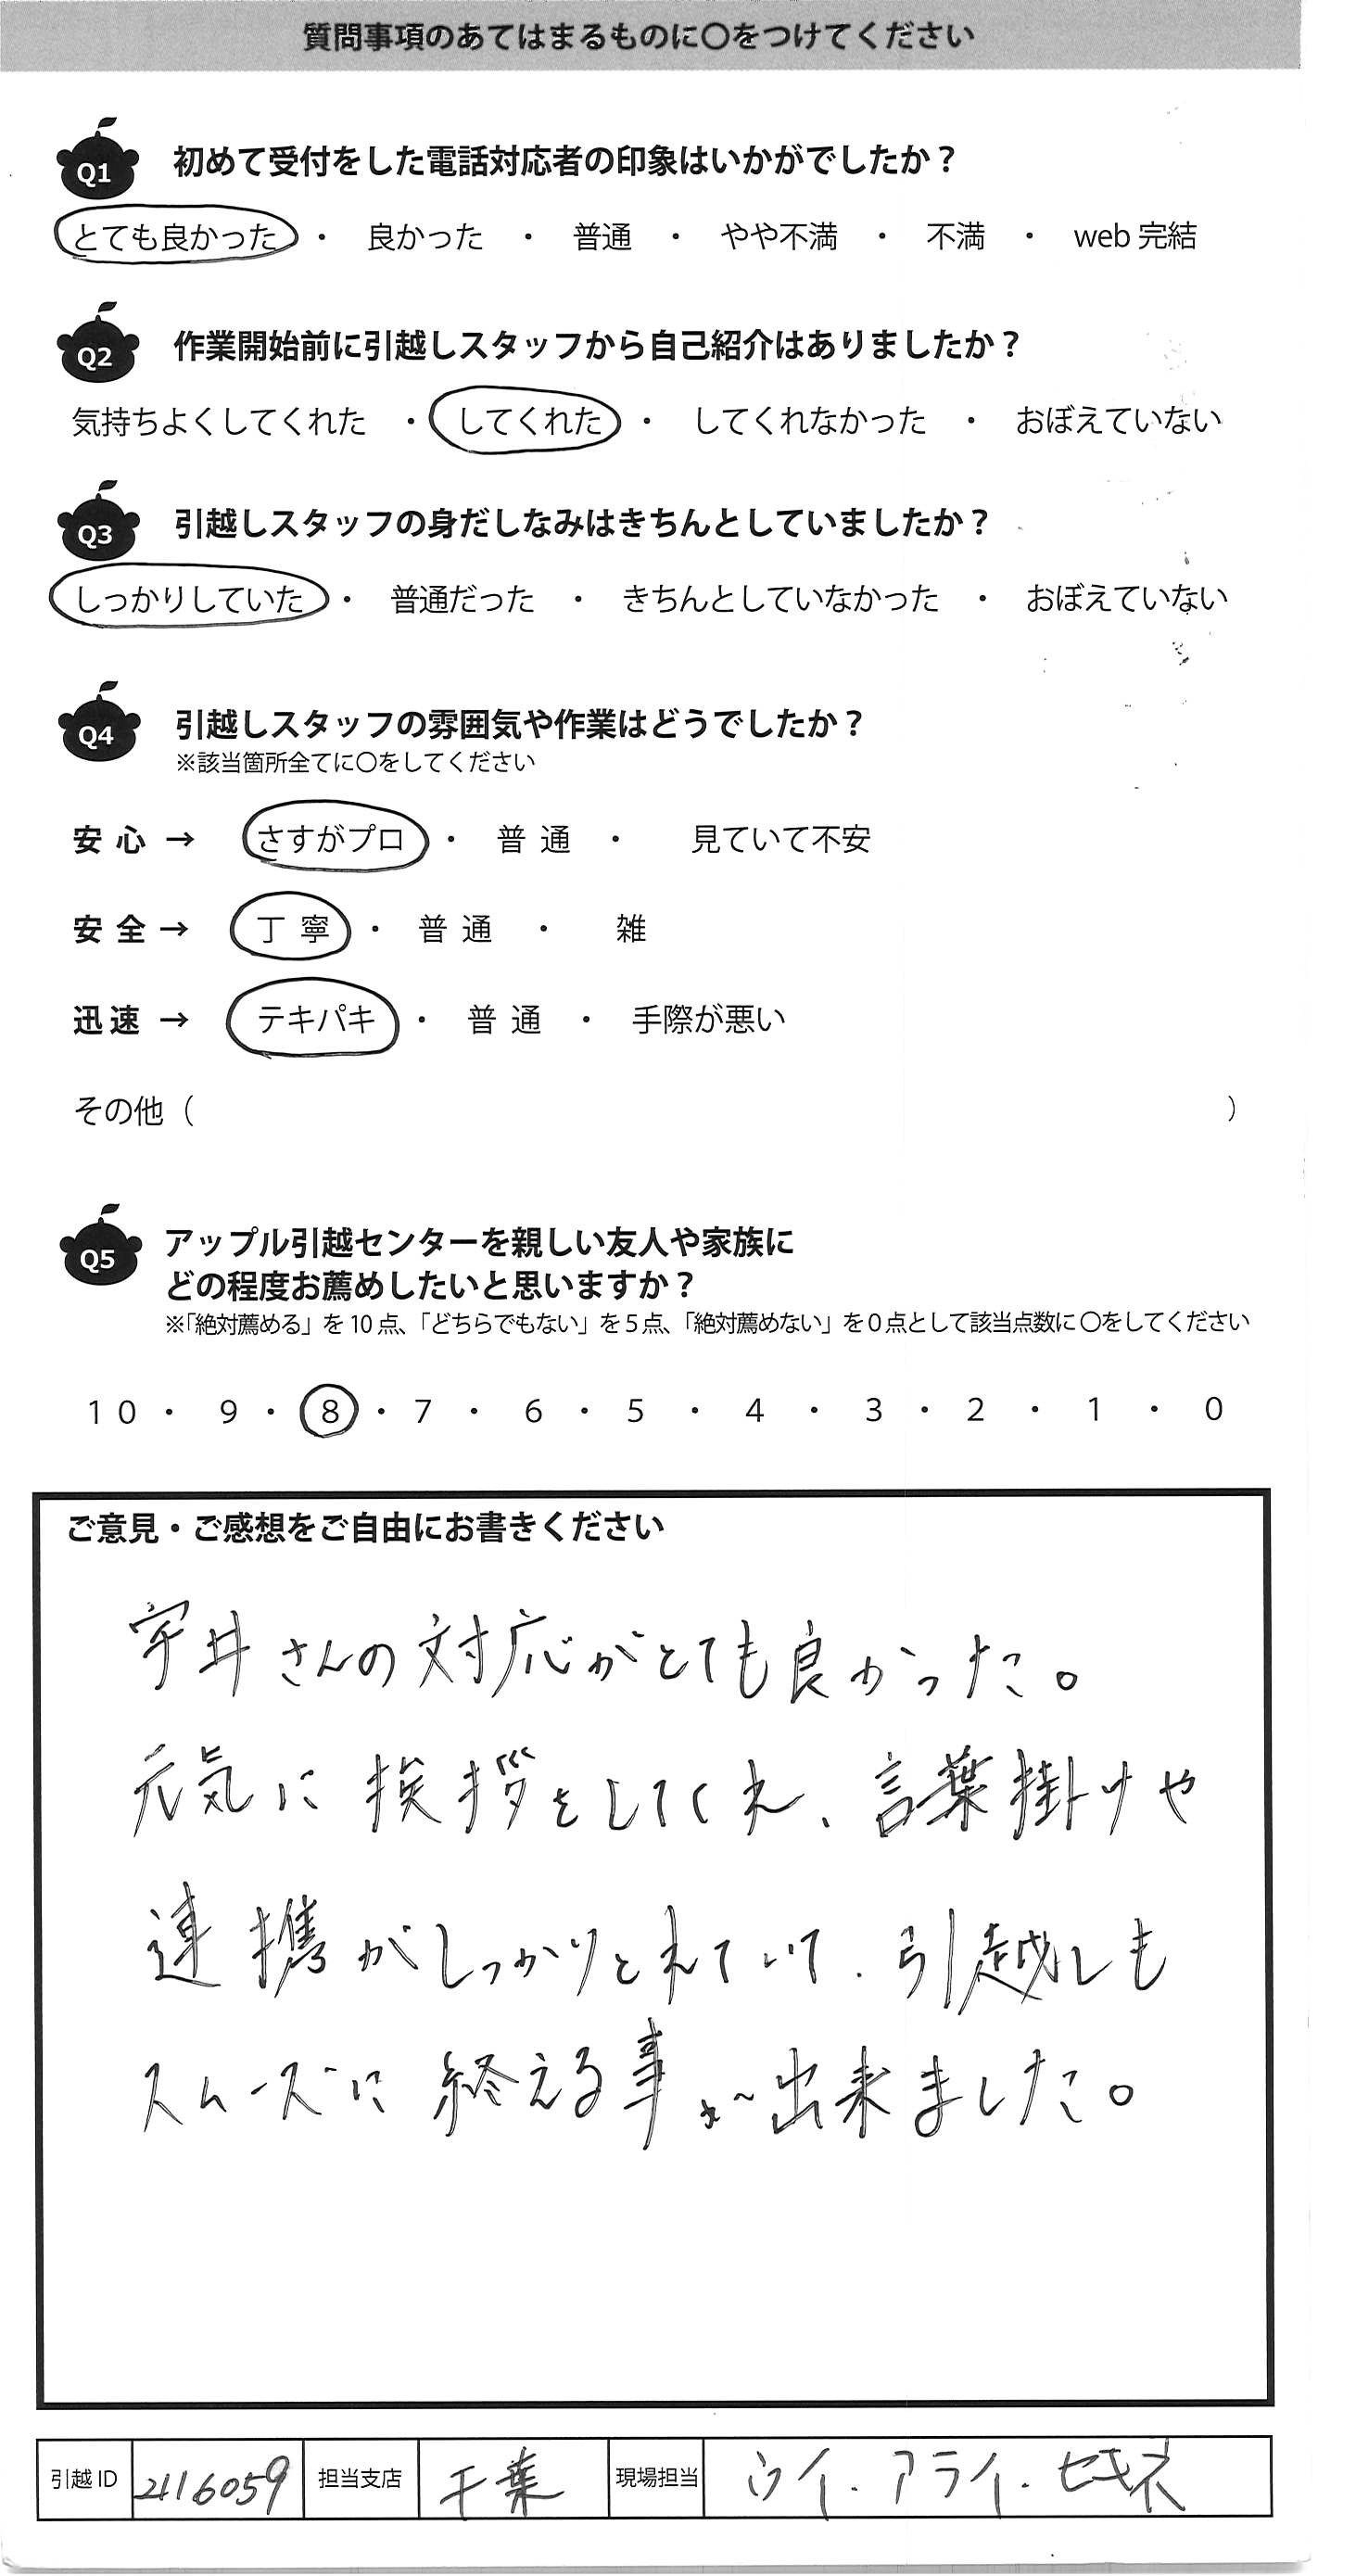 質問事項のあてはまるものに〇をつけてください
Q1 初めて受付をした電話対応者の印象はいかがでしたか？
とても良かった ・ 良かった ・ 普通 ・ やや不満 ・ 不満 ・ web 完結
Q2 作業開始前に引越しスタッフから自己紹介はありましたか？
気持ちよくしてくれた ・ してくれた ・ してくれなかった ・ おぼえていない
Q3 引越しスタッフの身だしなみはきちんとしていましたか？
しっかりしていた ・ 普通だった ・ きちんとしていなかった ・ おぼえていない
Q4 引越しスタッフの雰囲気や作業はどうでしたか？
※該当箇所全てに〇をしてください
安心 → さすがプロ ・ 普通 ・ 見ていて不安
安全 → 丁寧 ・ 普通 ・ 雑
迅速 → テキパキ ・ 普通 ・ 手際が悪い
その他（ ）
Q5 アップル引越センターを親しい友人や家族に
どの程度お薦めしたいと思いますか？
※「絶対薦める」を 10 点、「どちらでもない」を 5 点、「絶対薦めない」を 0 点として該当点数に 〇をしてください
10 ・ 9 ・ 8 ・ 7 ・ 6 ・ 5 ・ 4 ・ 3 ・ 2 ・ 1 ・ 0
ご意見・ご感想をご自由にお書きください
宇井さんの対応がとても良かった。
元気に挨拶をしてくれ、言葉掛けや
連携がしっかりとれていて、引越しも
スムーズに終える事が出来ました。
引越 ID 2116059 担当支店 千葉 現場担当 ウイ．アライ．セキネ